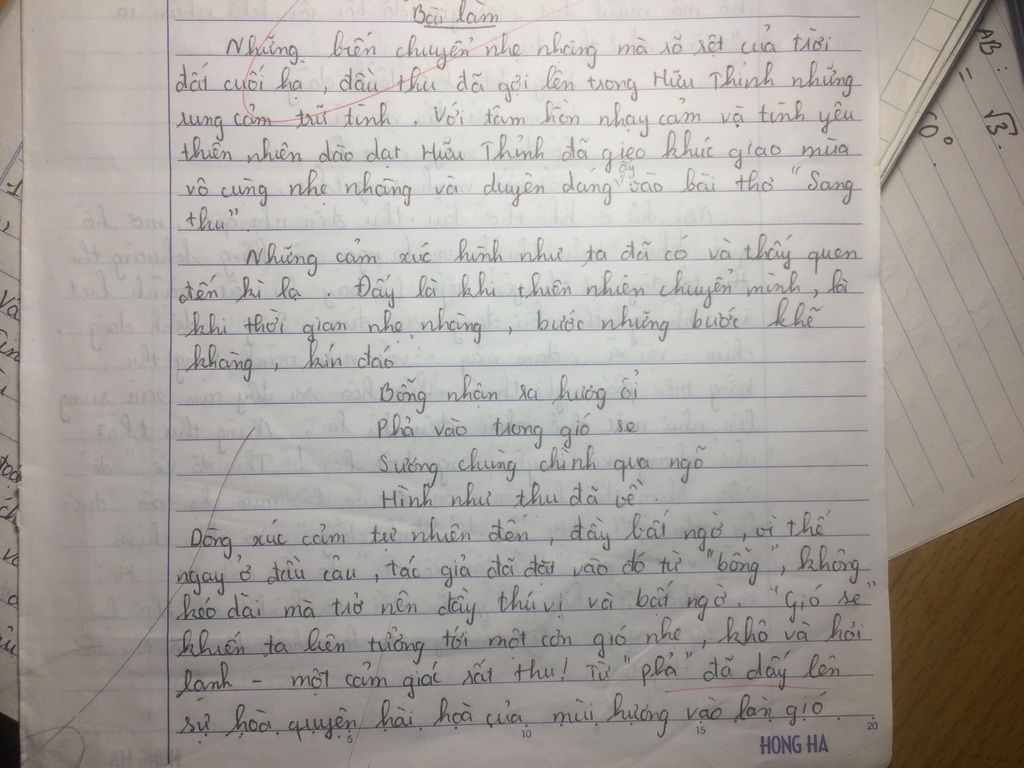 Bài làm
Những biến chuyển nhẹ nhàng mà rõ rệt của trời
đất cuối hạ, đầu thu đã gợi lên trong Hữu Thỉnh những
rung cảm trữ tình. Với tâm hồn nhạy cảm và tình yêu
thiên nhiên dào dạt Hữu Thỉnh đã gieo khúc giao mùa
vô cùng nhẹ nhàng và duyên dáng ấy vào bài thơ "Sang
thu".
Những cảm xúc hình như ta đã có và thấy quen
đến kì lạ. Đấy là khi thiên nhiên chuyển mình, là
khi thời gian nhẹ nhàng, bước những bước khẽ
khàng, kín đáo
Bỗng nhận ra hương ổi
Phả vào trong gió se
Sương chùng chình qua ngõ
Hình như thu đã về.
Dòng xúc cảm tự nhiên đến, đầy bất ngờ, vì thế
ngay ở đầu câu, tác giả đã đặt vào đó từ "bỗng", không
kéo dài mà trở nên đầy thú vị và bất ngờ. "Gió se"
khiến ta liên tưởng tới một cơn gió nhẹ, khô và hơi
lạnh - một cảm giác rất thu! Từ "phả" đã dấy lên
sự hoà quyện hài hoà của mùi hương vào làn gió
5 10 15 20
HONG HA
AB:
=
√3.
60°.